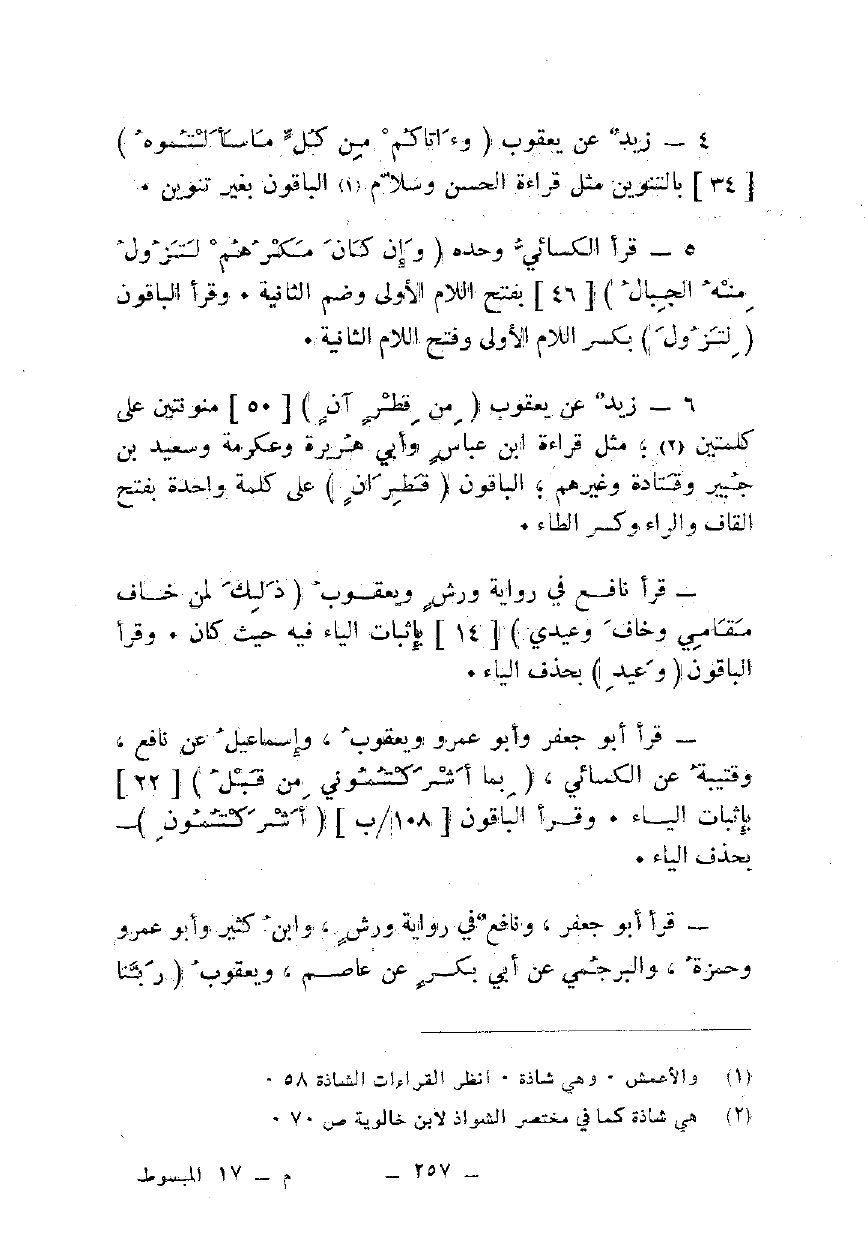 ٤ — زيدٌ عن يعقوب ( وءَاتاكُمْ مِن كُلٍّ مَاسَأَلْتُموهُ )
[ ٣٤ ] بالتنوين مثل قراءة الحسن وسَلّام (١) الباقون بغير تنوين ٠
٥ — قرأ الكسائيُّ وحده ( وَإِن كَانَ مَكْرُهُمْ لَتَزُولُ
مِنْهُ الجِبالُ ) [ ٤٦ ] بفتح اللام الأولى وضم الثانية ٠ وقرأ الباقون
( لِتَزُولَ ) بكسر اللام الأولى وفتح اللام الثانية ٠
٦ — زيدٌ عن يعقوب ( مِن قِطْرٍ آنٍ ) [ ٥٠ ] منونتين على
كلمتين (٢) ؛ مثل قراءة ابن عباسٍ وأبي هُريرة وعكرمة وسعيد بن
جُبير وقَتادة وغيرهم ؛ الباقون ( قَطِرَانٍ ) على كلمة واحدة بفتح
القاف والراء وكسر الطاء ٠
— قرأ نافع في رواية ورشٍ ويعقوبُ ( ذَلِكَ لمن خاف
مَقَامِي وخافَ وعيدي ) [ ١٤ ] بإثبات الياء فيه حيث كان ٠ وقرأ
الباقون ( وَعيدِ ) بحذف الياء ٠
— قرأ أبو جعفر وأبو عمرو ويعقوبُ ، وإسماعيلُ عن نافع ،
وقتيبةُ عن الكسائي ، ( بِما أَشْرَكْتُمُوني مِن قَبْلُ ) [ ٢٢ ]
بإثبات الياء ٠ وقرأ الباقون [ ١٠٨/ب ] ( أَشْرَكْتُمُونِ ) —
بحذف الياء ٠
— قرأ أبو جعفر ، ونافعٌ في رواية ورشٍ ، وابنُ كثير وأبو عمرو
وحمزةُ ، والبرجُمي عن أبي بكرٍ عن عاصم ، ويعقوبُ ( رَبَّنا
(١) والأعمش ٠ وهي شاذة ٠ انظر القراءات الشاذة ٥٨ ٠
(٢) هي شاذة كما في مختصر الشواذ لابن خالوية ص ٧٠ ٠
— ٢٥٧ — م — ١٧ المبسوط